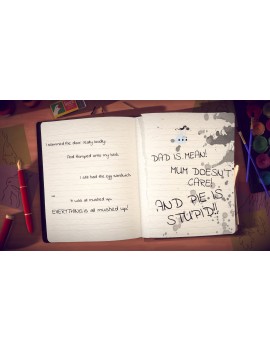 I slammed the door. Really loudly.
And flumped onto my bed.
I still had the egg sandwich.
It was all mushed up.
EVERYTHING is all mushed up!
DAD IS MEAN!
MUM DOESN'T
CARE!
AND PIE IS
STUPID!!